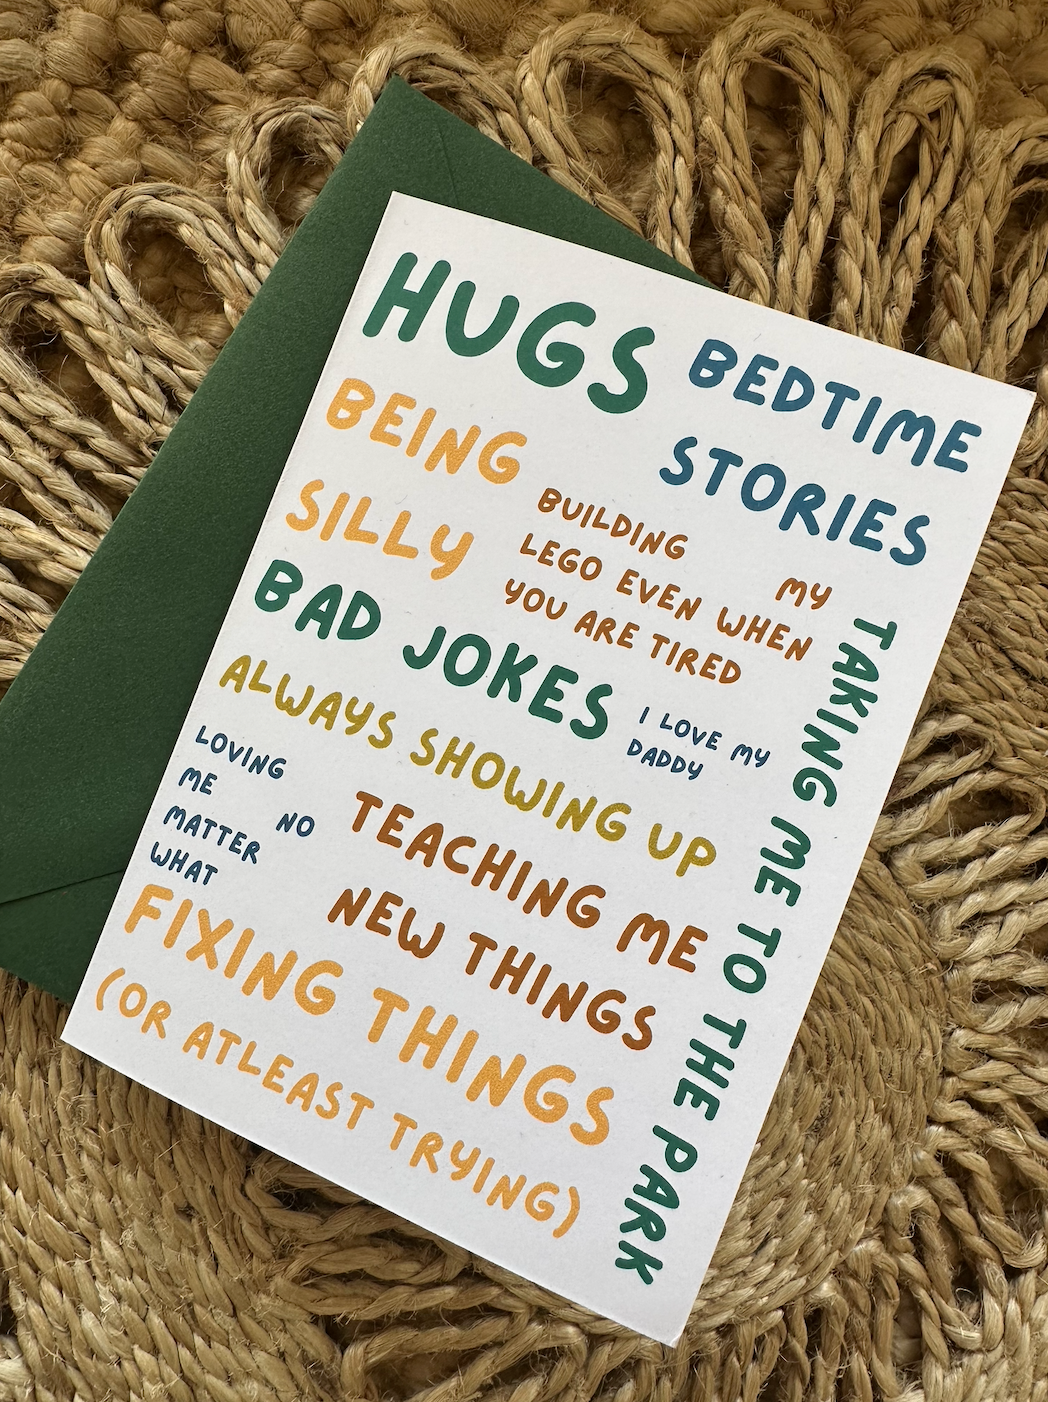 HUGS
BEDTIME
STORIES
BEING
SILLY
BUILDING
LEGO EVEN WHEN
YOU ARE TIRED
MY
BAD JOKES
I LOVE MY
DADDY
ALWAYS SHOWING UP
LOVING
ME NO
MATTER
WHAT
TEACHING ME
NEW THINGS
TAKING ME TO THE PARK
FIXING THINGS
(OR ATLEAST TRYING)